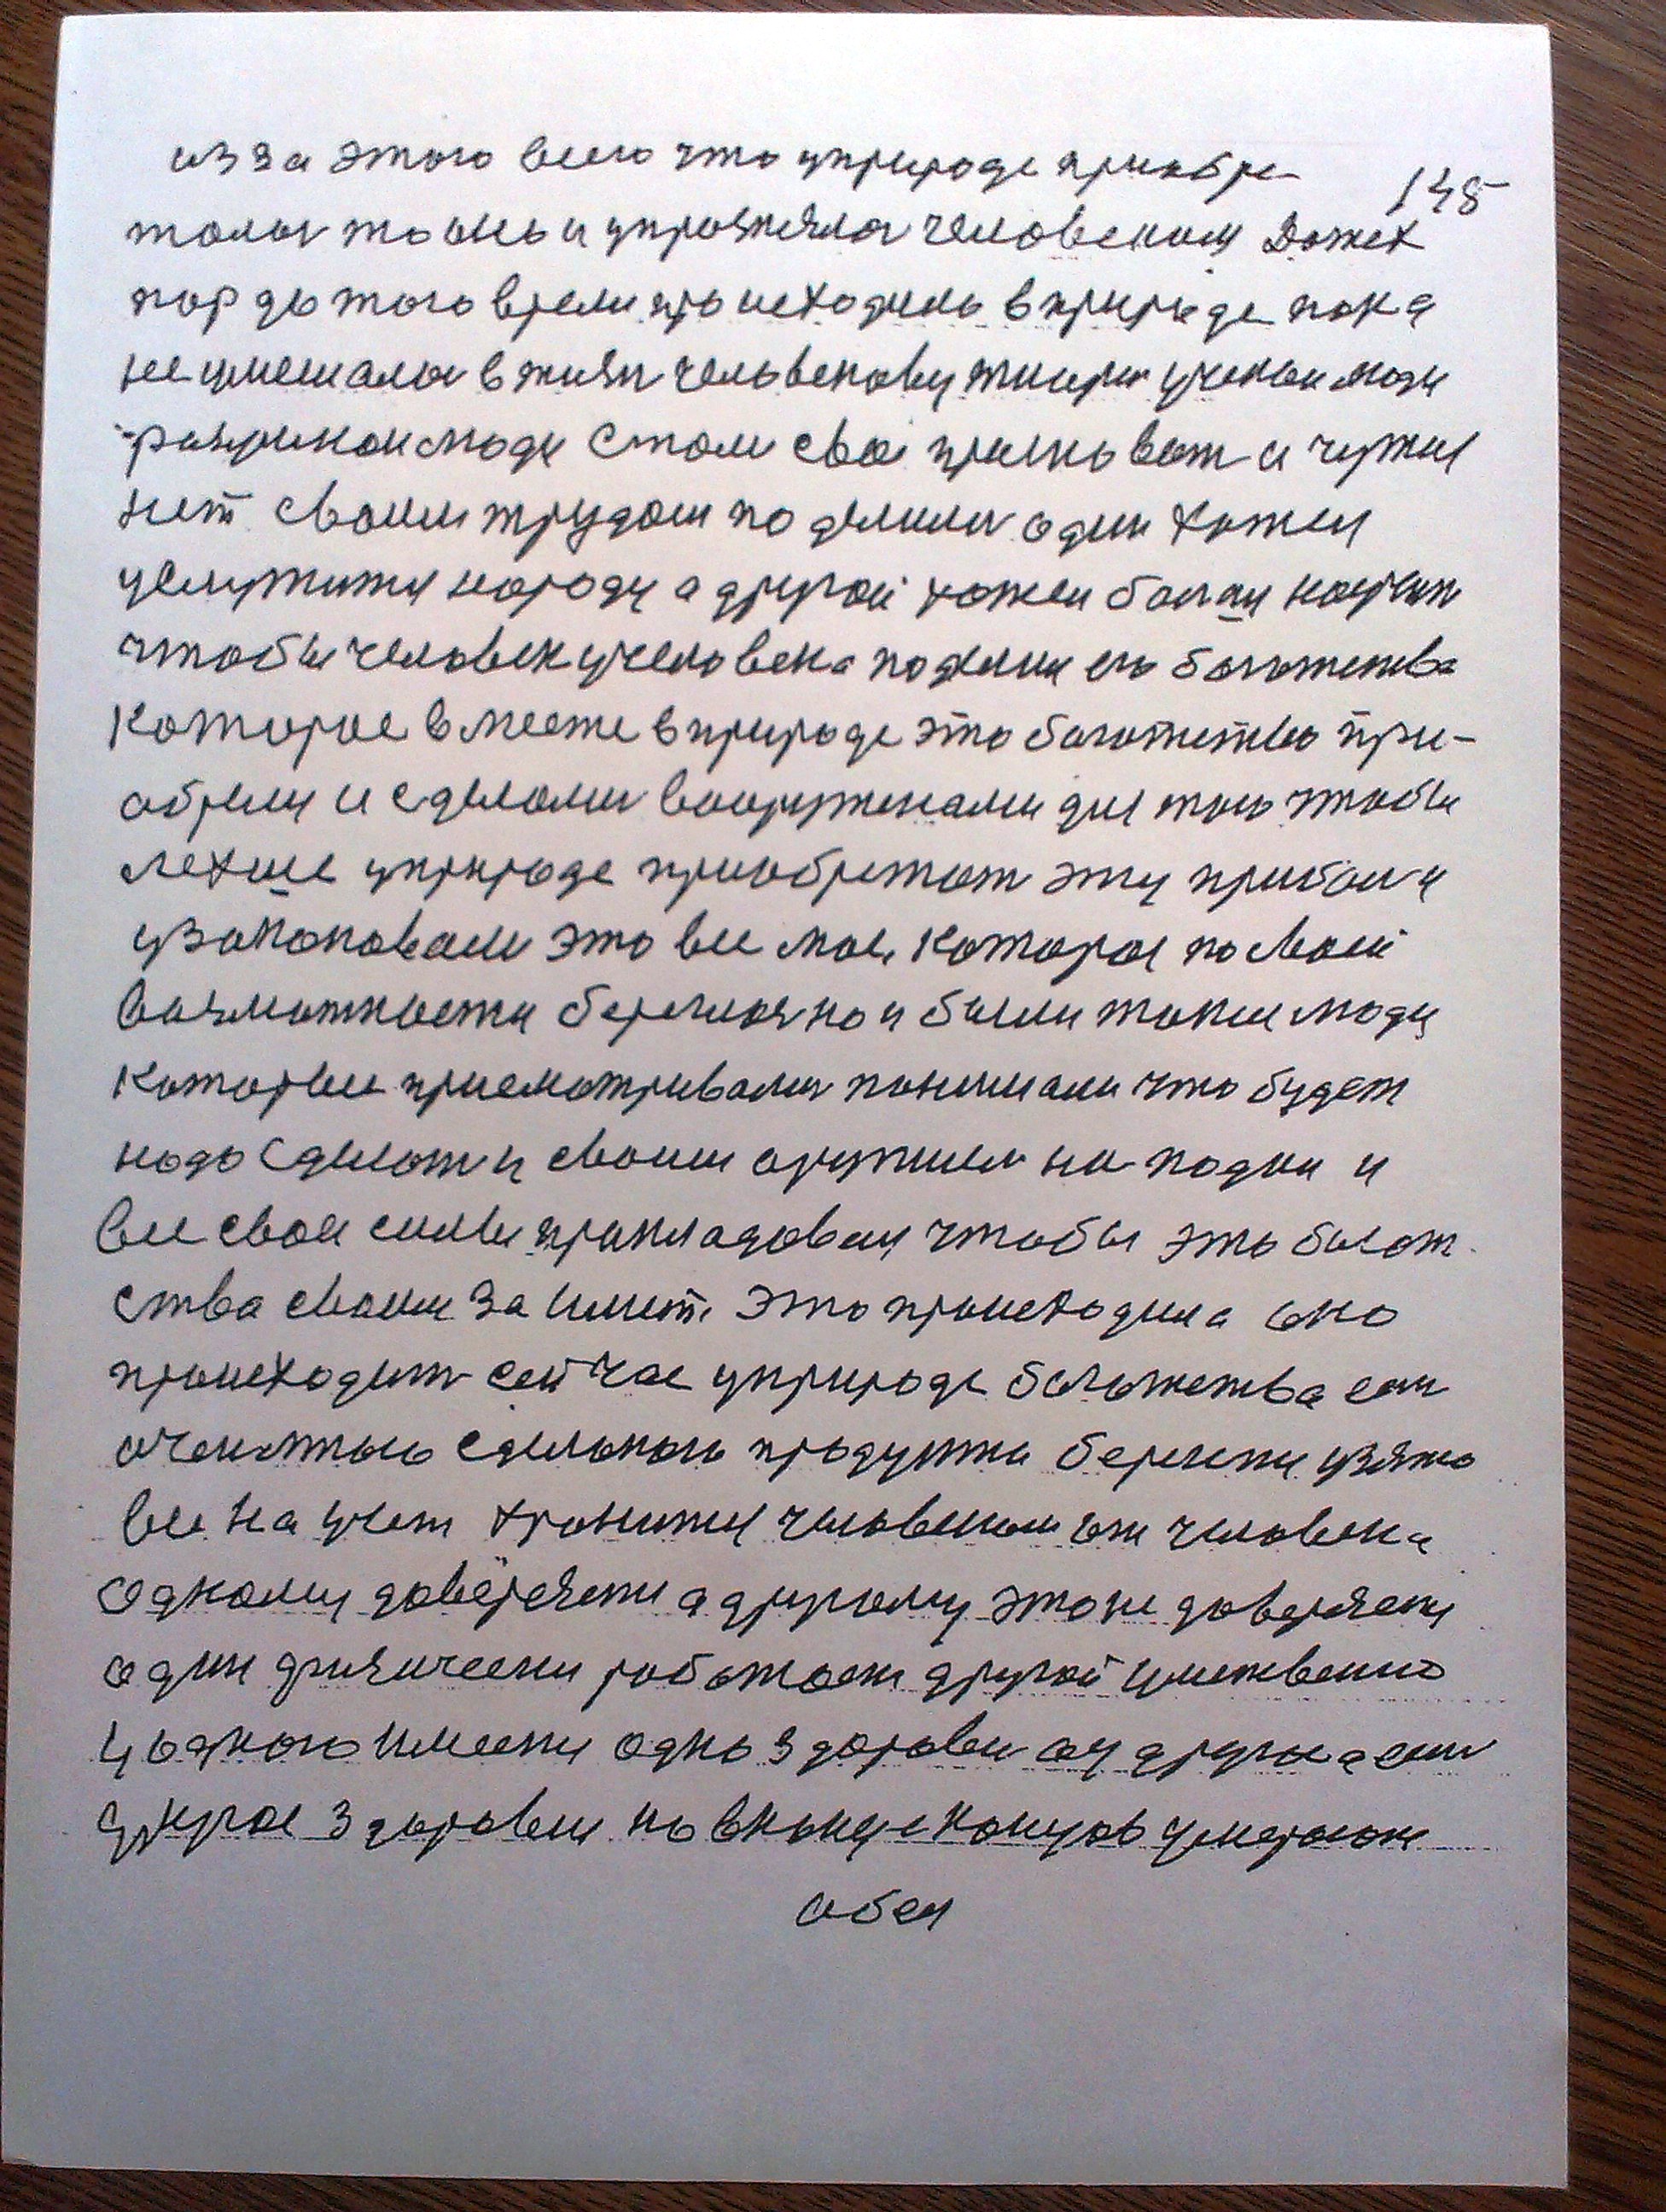 из за этого всего что уприроде приобре-
145
талось то оно и управляла человеком Дотех
пор до того время происходило в природе пока
не умешалась в жизн человекову ученои люди
розумнои люди стали свое признават и чужия
нет своим трудом поделились один хотел
услужити народу а другой хотел богат
чтобы человек у человека поделил его богатства
которое вместе в природе это богатство при-
обрели и сделались вооруженами для того чтобы
лехше уприроде приобретат эту прибыл и
узаконовали это все мое, которое по своей
возможности береглося но и были такии люди
которые присматривались понимали что будет
надо сделат и своим оружием нападки и
все свои силы прикладовали чтобы это богат
ства своим за имет. Это происходила оно
происходит сейчас уприроде богатства ест
сделоного продукта берегут узято
все на учет хронится человеком от человека
одному доверяется а другому это не доверяется
один физически работает другой умствено
у одного имеется одно здоровье а у другова ест
другое здоровье но в конце концов умерают
обея